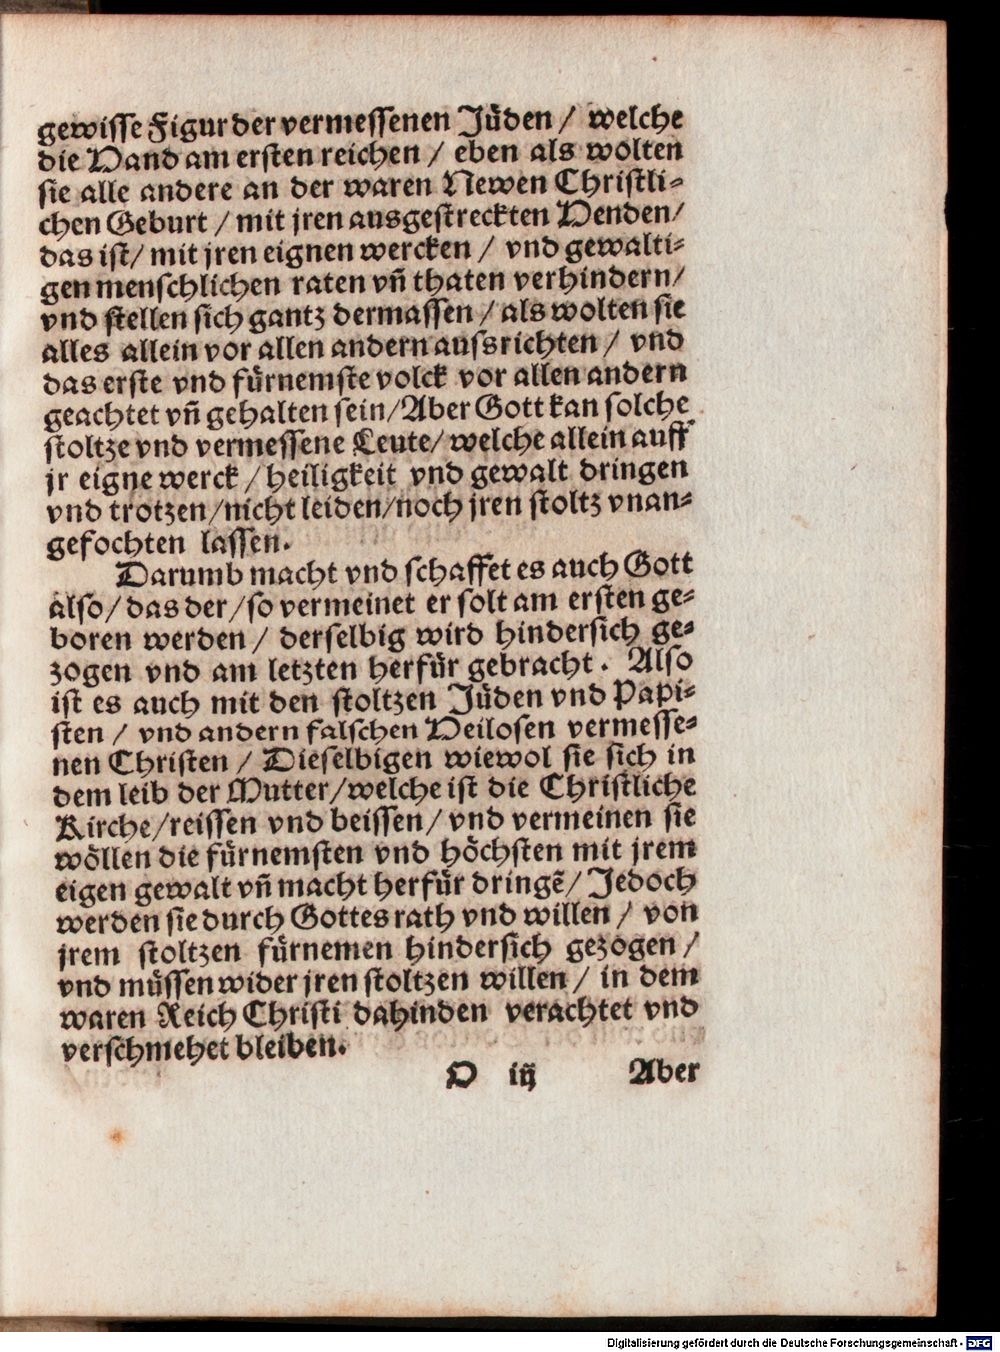 gewisse Figur der vermessenen Jüden / welche
die Hand am ersten reichen / eben als wolten
sie alle andere an der waren Newen Christli-
chen Geburt / mit jren ausgestreckten Henden/
das ist/ mit jren eignen wercken / vnd gewalti-
gen menschlichen raten vñ thaten verhindern/
vnd stellen sich gantz dermassen / als wolten sie
alles allein vor allen andern aussrichten / vnd
das erste vnd fürnemste volck vor allen andern
geachtet vñ gehalten sein/Aber Gott kan solche
stoltze vnd vermessene Leute/ welche allein auff
jr eigne werck / heiligkeit vnd gewalt dringen
vnd trotzen/nicht leiden/noch jren stoltz vnan-
gefochten lassen.
Darumb macht vnd schaffet es auch Gott
also/ das der/so vermeinet er solt am ersten ge-
boren werden / derselbig wird hindersich ge-
zogen vnd am letzten herfür gebracht. Also
ist es auch mit den stoltzen Jüden vnd Papi-
sten / vnd andern falschen Heilosen vermesse-
nen Christen / Dieselbigen wiewol sie sich in
dem leib der Mutter/welche ist die Christliche
Kirche/reissen vnd beissen/ vnd vermeinen sie
wöllen die fürnemsten vnd höchsten mit jrem
eigen gewalt vñ macht herfür dringē/ Jedoch
werden sie durch Gottes rath vnd willen / von
jrem stoltzen fürnemen hindersich gezogen /
vnd müssen wider jren stoltzen willen / in dem
waren Reich Christi dahinden verachtet vnd
verschmehet bleiben.
O iij Aber
Digitalisierung gefördert durch die Deutsche Forschungsgemeinschaft - DFG